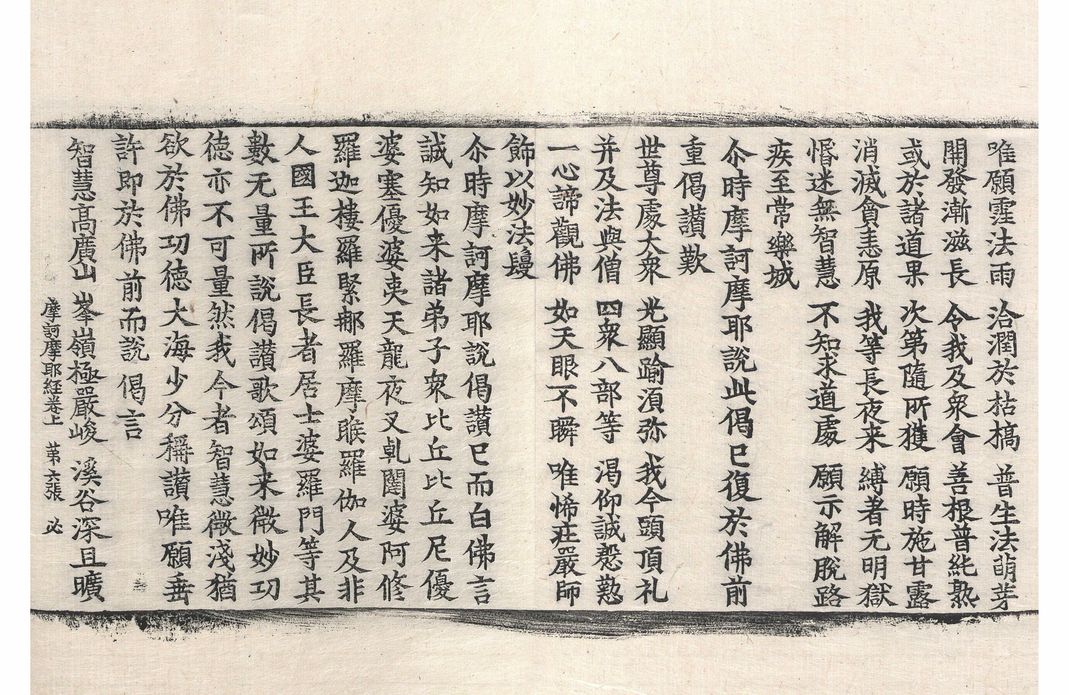 唯願霔法雨　洽潤於枯槁　普生法萌芽
開發漸滋長　令我及衆會　善根普純熟
或於諸道果　次第隨所獲　願時施甘露
消滅貪恚原　我等長夜来　縛者无明獄
惛迷無智慧　不知求道處　願示解脫路
疾至常樂城
尒時摩訶摩耶說此偈已復於佛前
重偈讃歎
世尊處大衆　光顯踰湏弥　我今頭頂礼
并及法與僧　四衆八部等　渴仰誠慇懃
一心諦觀佛　如天眼不瞬　唯悕莊嚴師
飾以妙法鬘
尒時摩訶摩耶說偈讃已而白佛言
誠知如来諸弟子衆比丘比丘尼優
婆塞優婆夷天龍夜叉乹闥婆阿修
羅迦樓羅緊那羅摩睺羅伽人及非
人國王大臣長者居士婆羅門等其
數无量所說偈讃歌頌如来微妙功
德亦不可量然我今者智慧微淺猶
欲於佛功德大海少分稱讃唯願垂
許即於佛前而說偈言
智慧高廣山　峯嶺極嚴峻　溪谷深且曠
摩訶摩耶経卷上　苐六張　必